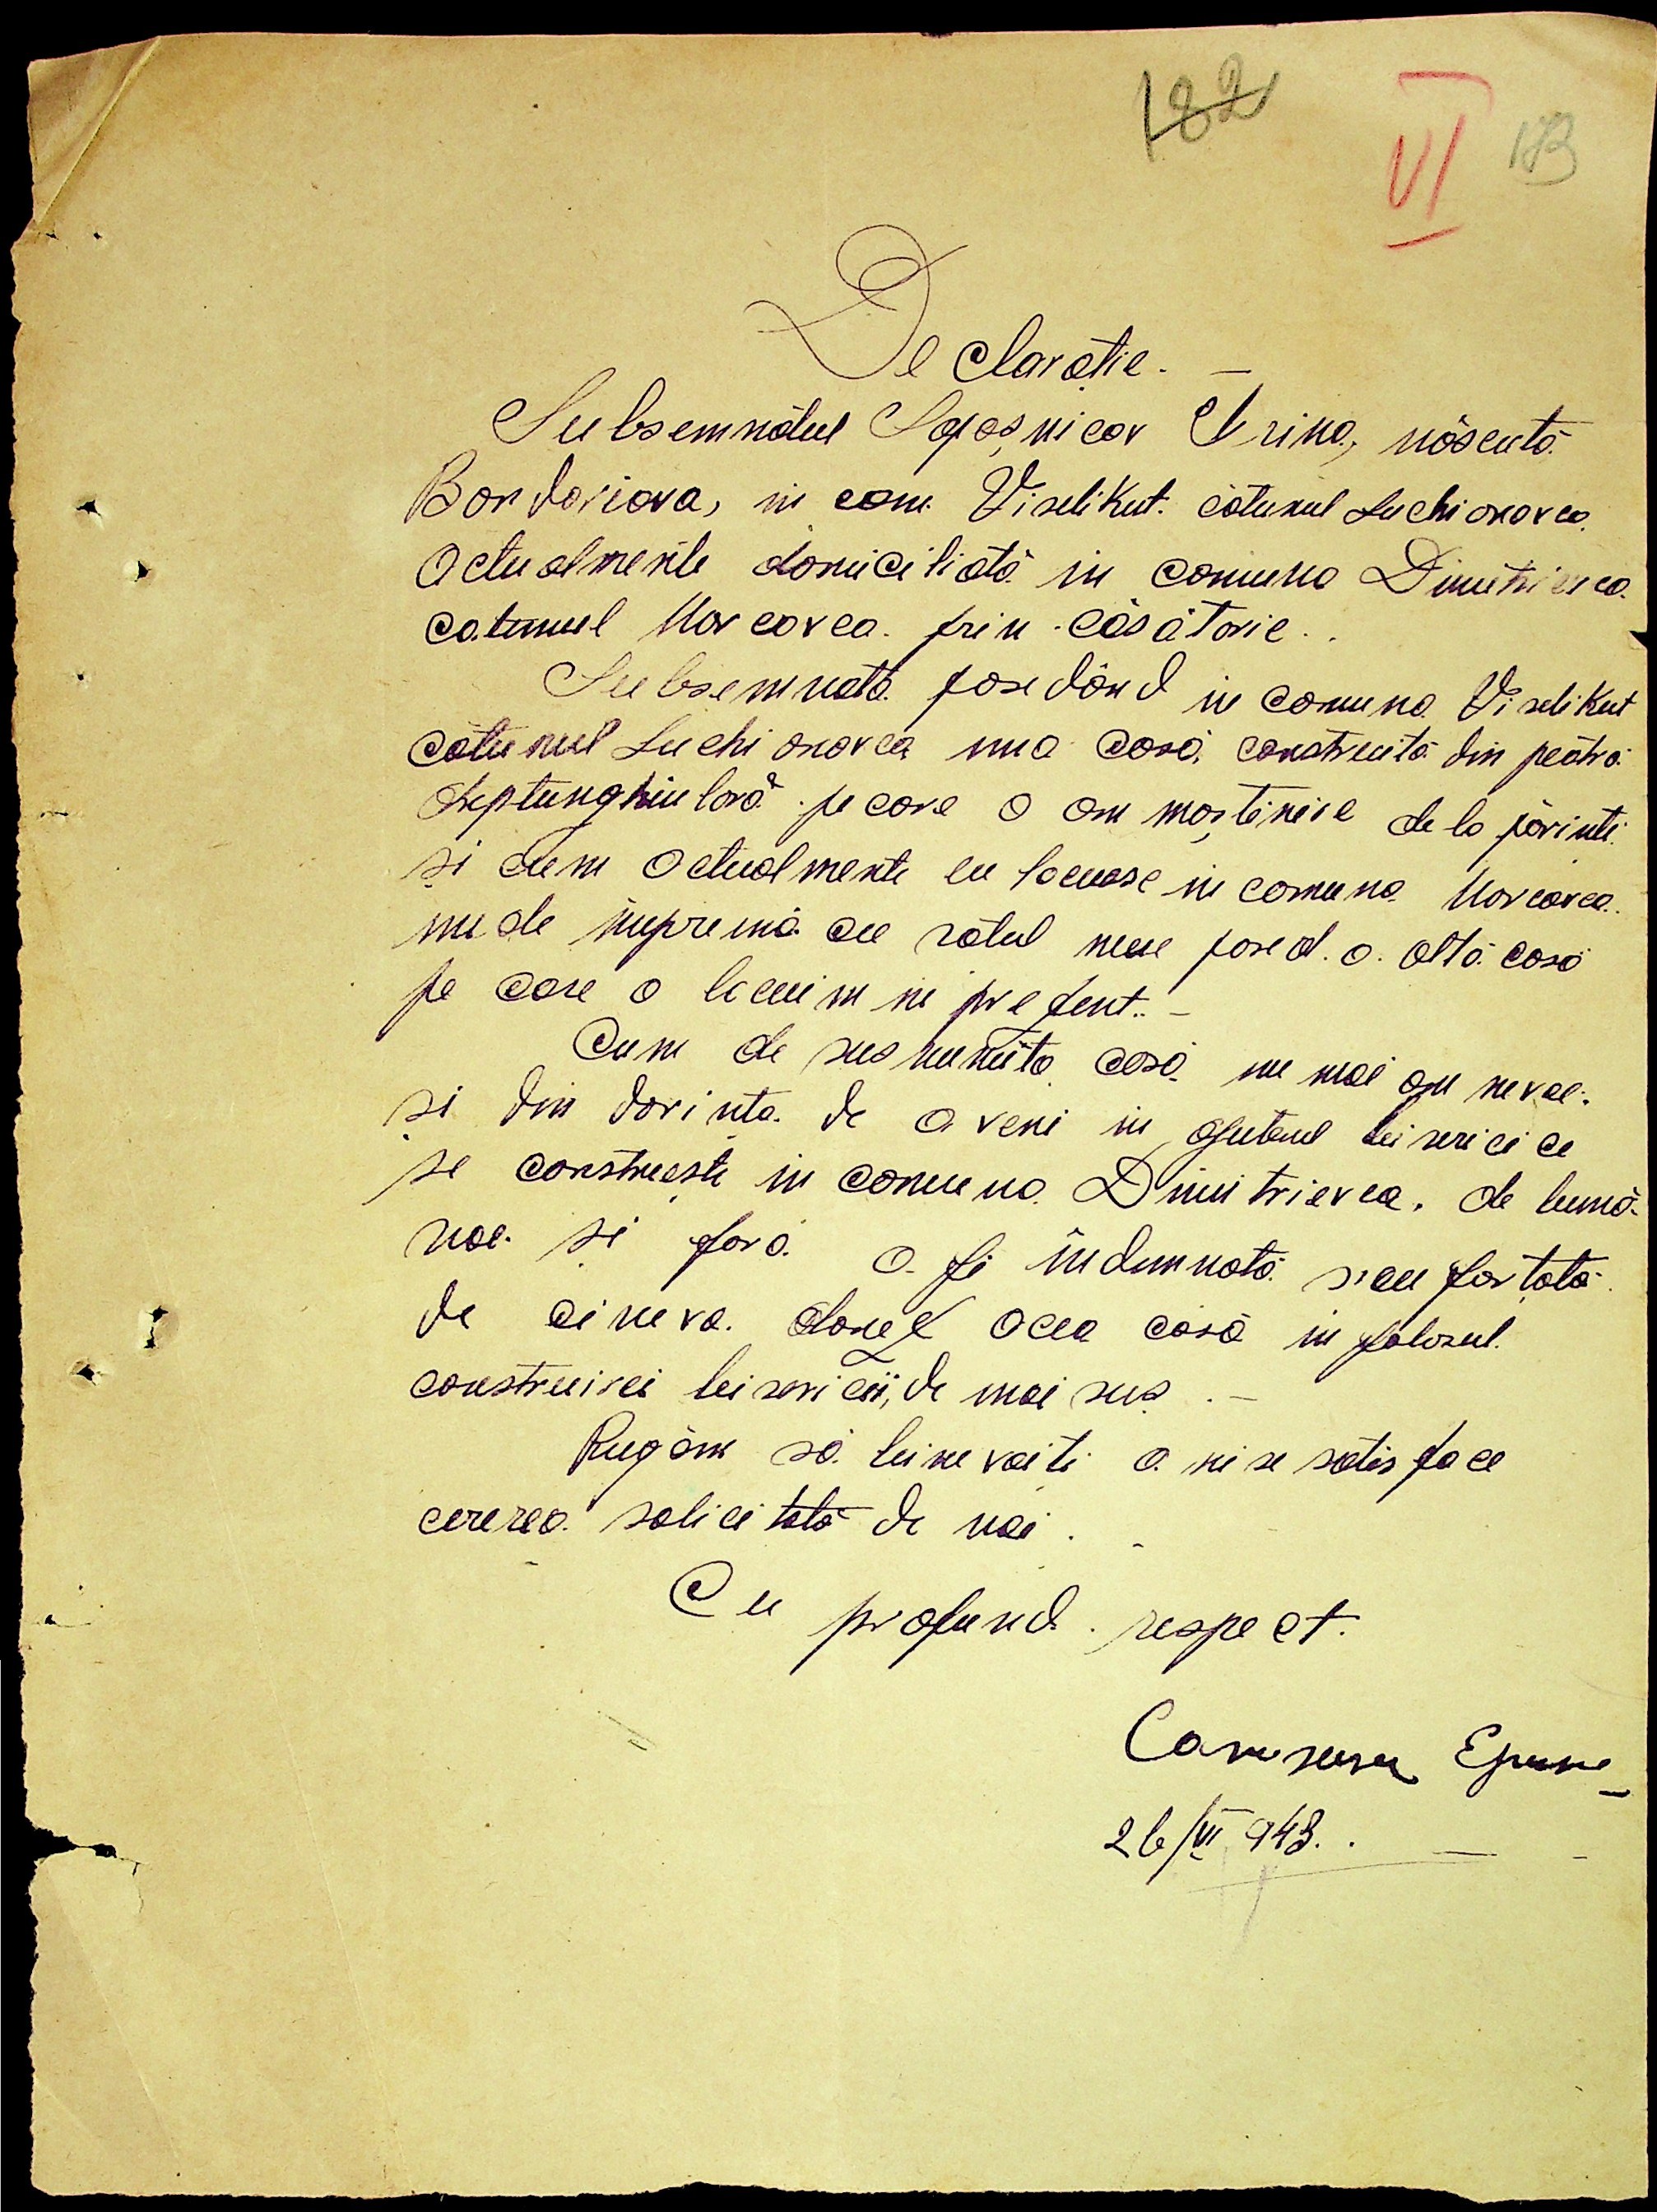 182
VI
Declarație. —
Subsemnatul Sapoșnicov Irina, născută
Bondariova, in com. Viselikut. cătunul Luchianovca.
Actualmente domiciliată in comuna Dimitrievca
catunul Marcovca. prin căsătorie..
Subsemnata posedând in comuna Viselikut
cătunul Luchianovca una casă, construită din peatră
dreptunghiulară pe care o am moștenire de la părinți.
și cum actualmente eu locuesc in comuna Marcovca.
unde impreună cu sătul meu posed. o. altă casă
pe care o locuim in prezent.. —
Cum de sus numita casă nu mai am nevoe.
și din dorința de a veni in ajutorul bisericii ce
se construește in comuna Dimitrievca. de bună-
voe. și fară a fi indemnată sau forțată
de cineva. donez acea casă in folosul.
construirei bisericii, de mai sus. —
Rugăm să binevoiți a ni se satisface
cererea solicitată de noi.
Cu profund respect.
26/VI 943..